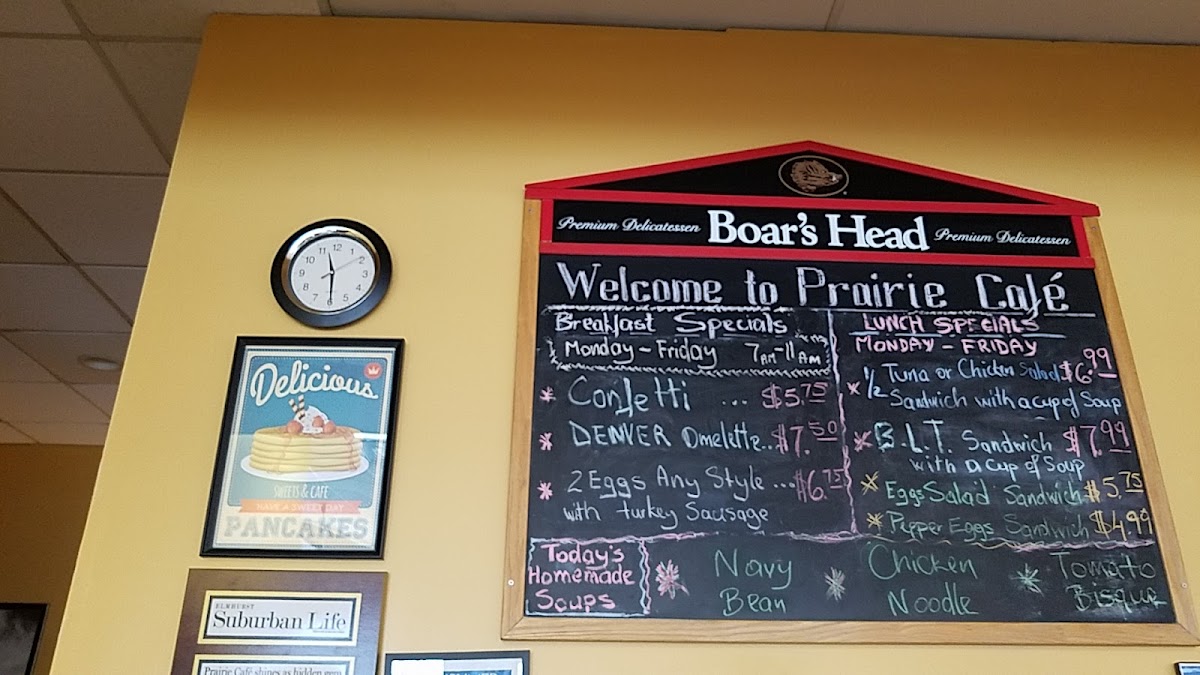 Premium Delicatessen Boar's Head Premium Delicatessen
Welcome to Prairie Café
Breakfast Specials
Monday - Friday 7AM-11AM
* Confetti ... $5.75
* DENVER Omelette... $7.50
* 2 Eggs Any Style ... $6.75
with turkey Sausage
LUNCH SPECIALS
MONDAY - FRIDAY
* 1/2 Tuna or Chicken Salad $6.99
Sandwich with a cup of Soup
* B.L.T. Sandwich $7.99
with a cup of Soup
* Eggs Salad Sandwich $5.75
* Pepper Eggs Sandwich $4.99
Today's
Homemade
Soups
* Navy
Bean
* Chicken
Noodle
* Tomato
Bisque
12
1
2
3
4
5
6
7
8
9
10
11
Delicious
SWEETS & CAFE
HAVE A SWEET DAY
PANCAKES
ELMHURST
Suburban Life
Prairie Café shines as hidden gem